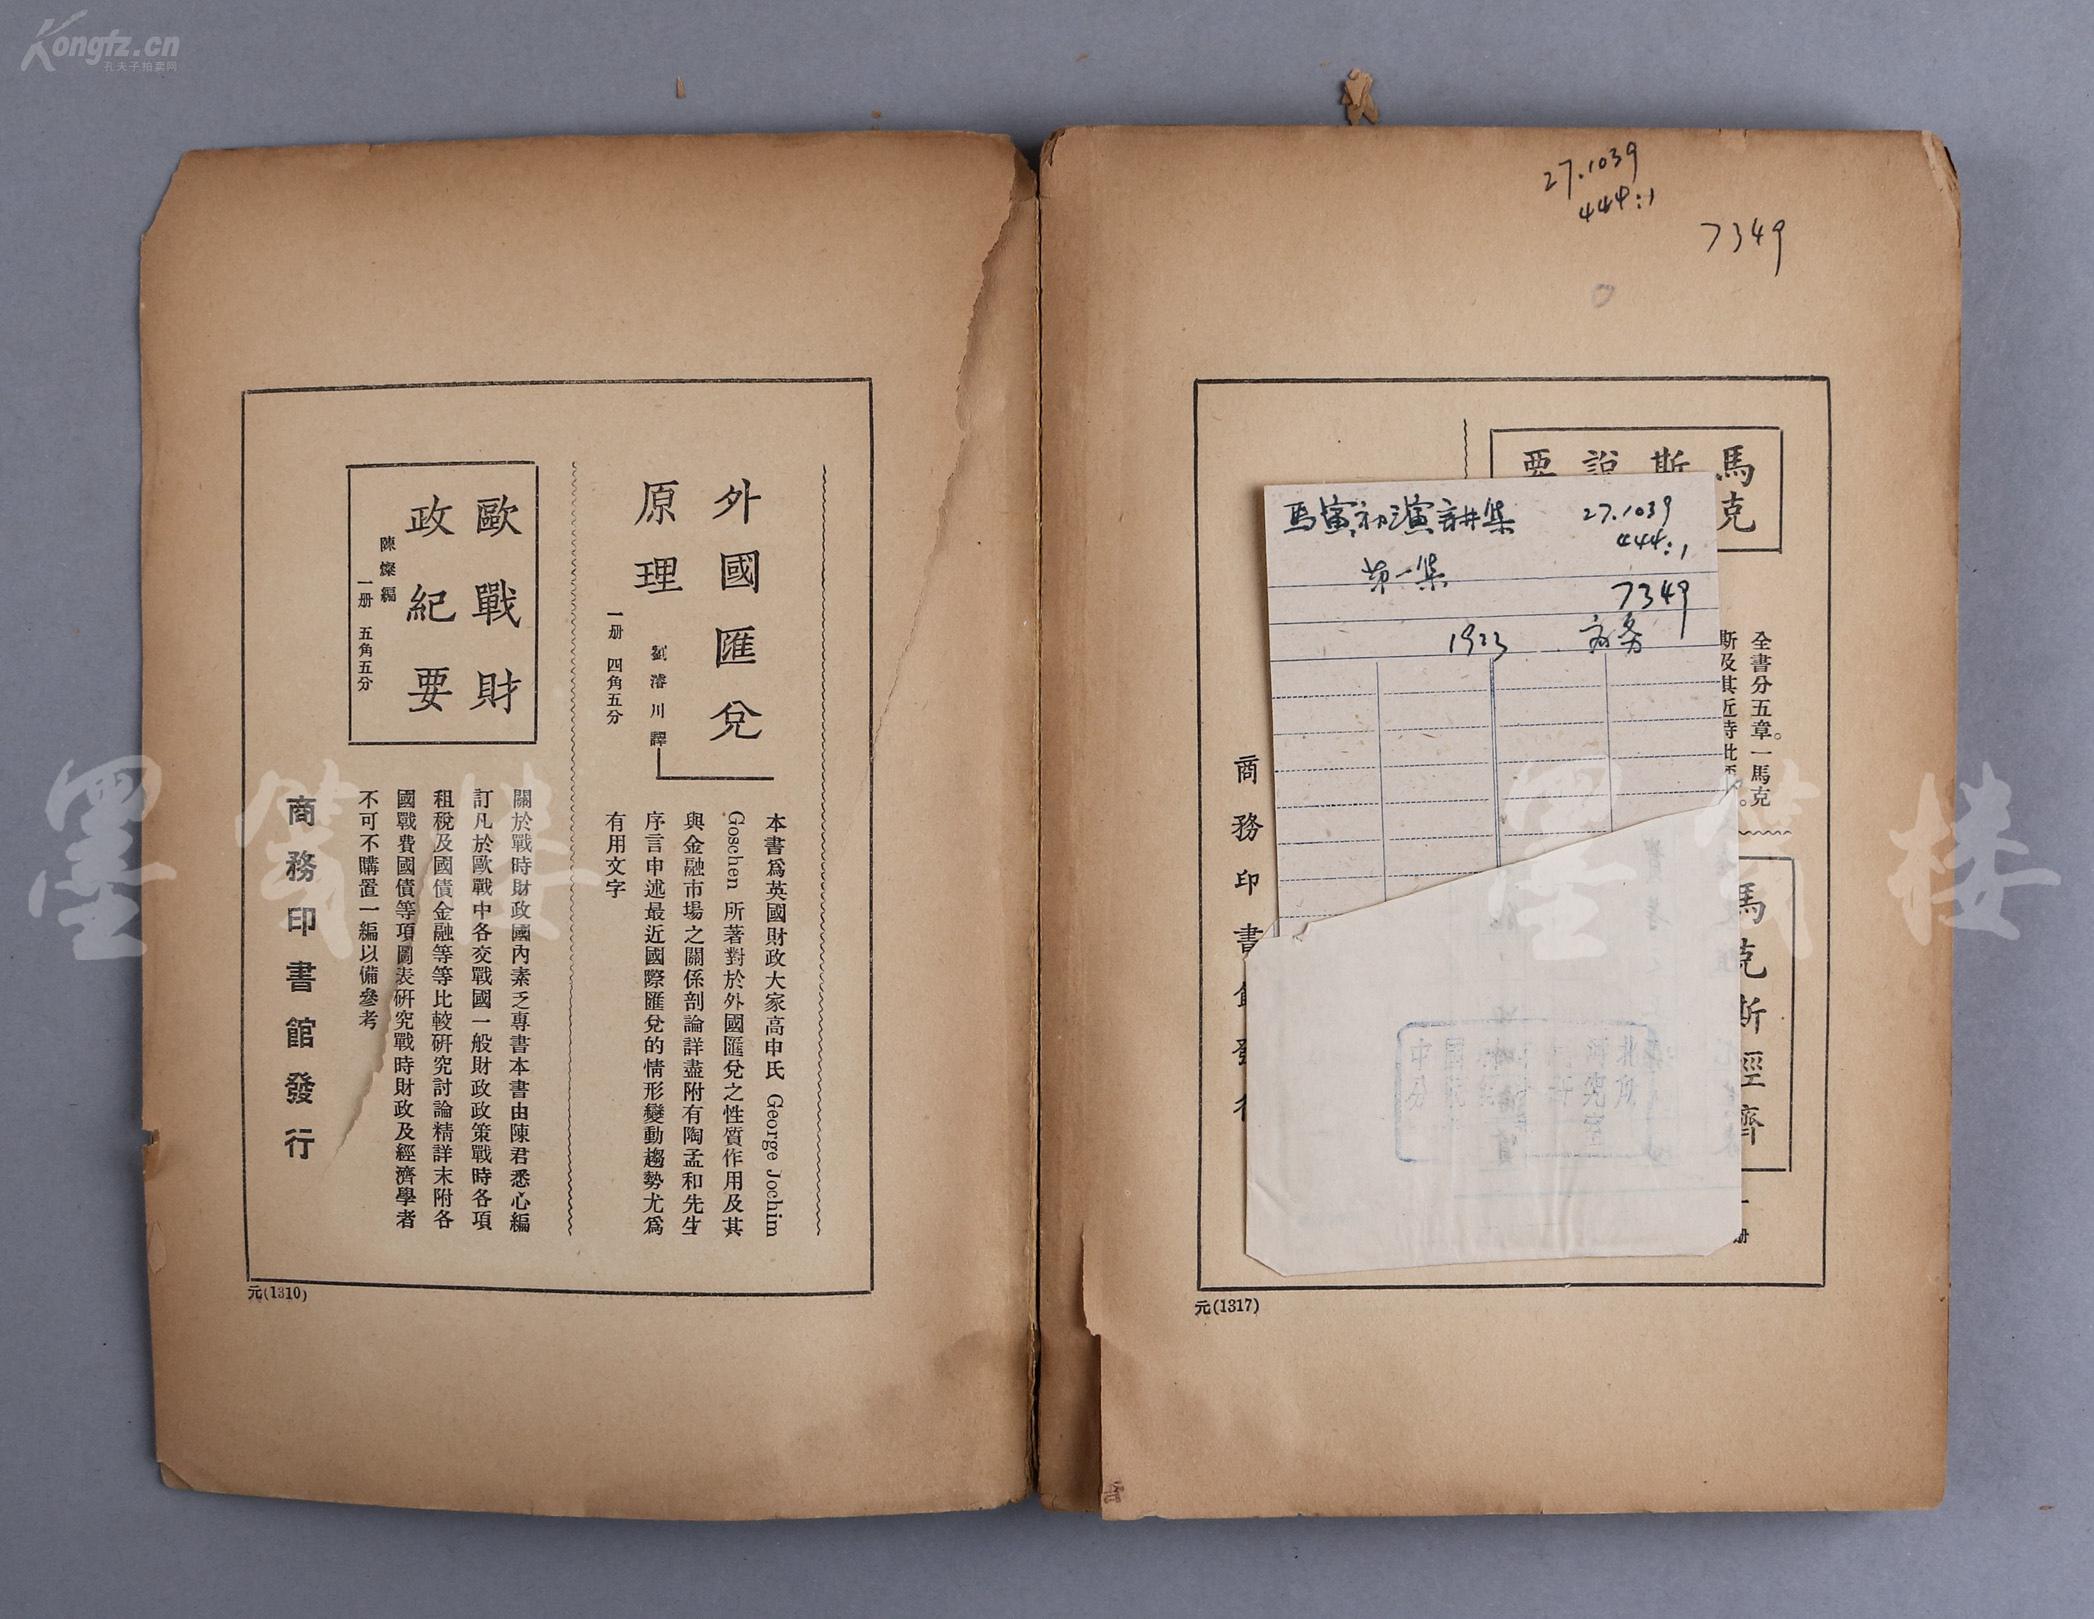 Kongfz.cn
孔夫子拍卖网
外國匯兌
原理
劉濬川譯
一册 四角五分
本書爲英國財政大家高申氏 George Jochim
Goschen 所著對於外國匯兌之性質作用及其
與金融市場之關係剖論詳盡附有陶孟和先生
序言申述最近國際匯兌的情形變動趨勢尤爲
有用文字
歐戰財
政紀要
陳燦編
一册 五角五分
關於戰時財政國內素乏專書本書由陳君悉心編
訂凡於歐戰中各交戰國一般財政政策戰時各項
租稅及國債金融等等比較硏究討論精詳末附各
國戰費國債等項圖表硏究戰時財政及經濟學者
不可不購置一編以備參考
商務印書館發行
元(1310)
27.1039
444:1
7349
馬克
斯
說
要
全書分五章。一馬克
斯及其近時批
馬克斯經濟
一册
商務印書
元(1317)
馬寅初演講集
第一集
27.1039
444:1
7349
1923
商务
墨笺楼
墨笺楼